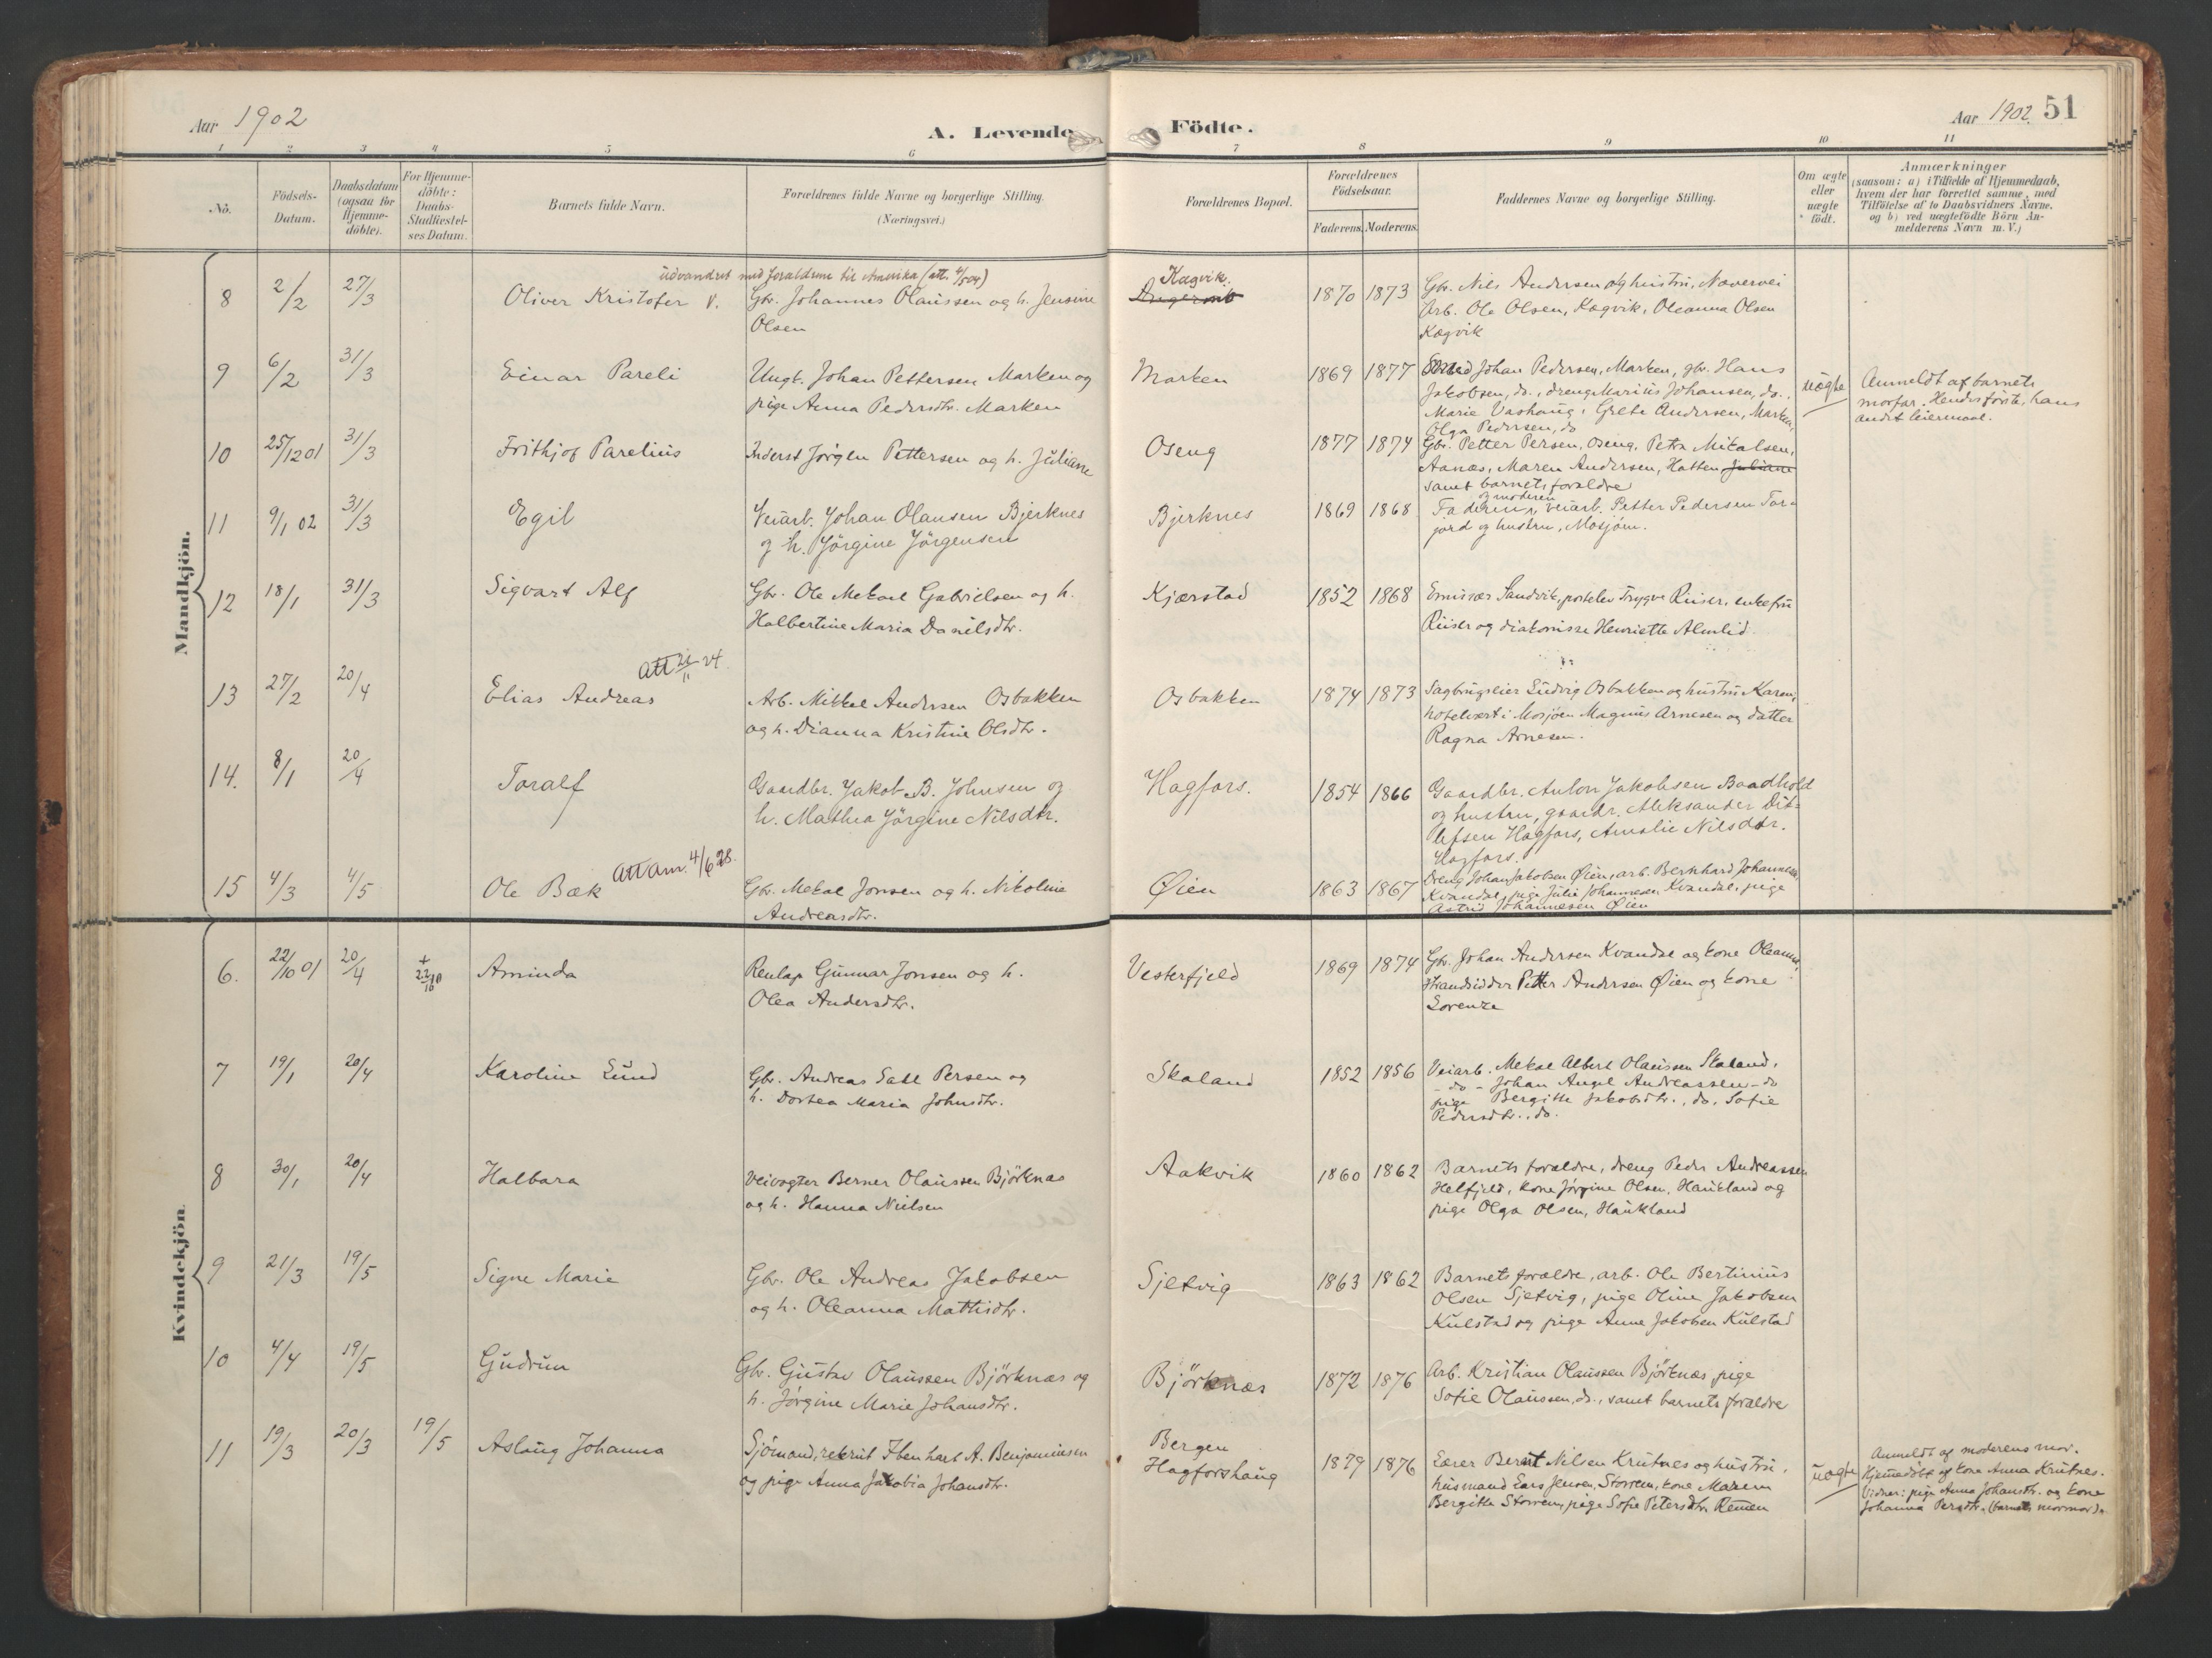 Aar 1902
A. Levende Födte.
Aar 1902. 51
1 2 3 4 5 6 7 8 9 10 11
No.
Födsels-
Datum.
Daabsdatum
(ogsaa for
Hjemme-
döbte).
For Hjemme-
döbte:
Daabs-
Stadfæstel-
ses Datum.
Barnets fulde Navn.
Forældrenes fulde Navne og borgerlige Stilling.
(Næringsvei.)
Forældrenes Bopæl.
Forældrenes
Födselsaar.
Faderens. Moderens.
Faddernes Navne og borgerlige Stilling.
Om ægte
eller
uægte
født.
Anmærkninger
(saasom: a) i Tilfælde af Hjemmedaab,
hvem der har forrettet samme, med
Tilföielse af to Daabsvidners Navne.
og b) ved uægtefödte Börn An-
melderens Navn m. V.)
Mandkjön.
udvandret med forældrene til Amerika (att. 4/5 04)
8 2/2 27/3 Oliver Kristofer V. Gbr. Johannes Olaussen og h. Jensine
Olsen
Kagvik.
1870 1873 Gbr. Nils Andersen og hustru, Nævervei
Arb. Ole Olsen, Kagvik, Oleanna Olsen
Kagvik
9 6/2 31/3 Einar Pareli Ungk. Johan Pettersen Marken og
pige Anna Pedersdtr. Marken
Marken 1869 1877 Johan Pedersen, Marken, gbr. Hans
Jakobsen, do., dreng Marius Johansen, do.,
Marie Vashaug, Grete Andersen, Marken,
Olga Pedersen, do
uægte
Anmeldt af barnets
morfar. Hendes første, hans
andet leiermaal.
10 25/12 01 31/3 Frithjof Parelius Inderst Jørgen Pettersen og h. Juliane
Oseng 1877 1874 Gbr. Petter Persen, Oseng, Petra Mikalsen,
Aanæs, Maren Andersen, Hatten, Juliane
samt barnets forældre
11 9/1 02 31/3 Egil Veiarb. Johan Olausen Bjerknes
og h. Jörgine Jörgensen
Bjerknes 1869 1868 Faderen og moderen, veiarb. Petter Pedersen Tor-
jord og hustru, Mosjøen.
12 18/1 31/3 Sigvart Alf Gbr. Ole Mekael Gabrielsen og h.
Halbertine Maria Danilsdtr.
Kjærstad 1852 1868 Emissær Sandvik, postelev Trygve Riiser, enkefru
Riiser og diakonisse Henriette Almlid.
13 27/2 20/4 Elias Andreas
Att 21/11 24.
Arb. Mikkel Andersen Osbakken
og h. Dianna Kristine Olsdtr.
Osbakken 1874 1873 Sagbrugseier Ludvig Osbakken og hustru Karen,
hotelvert i Mosjøen Magnus Arnesen og datter
Ragna Arnesen.
14. 8/1 20/4 Toralf Gaardbr. Jakob B. Johnsen og
h. Mathea Jörgine Nilsdtr.
Hagfors. 1854 1866 Gaardbr. Anton Jakobsen Baadhold
og hustru, gaardbr. Aleksander Dit-
lefsen Hagfors, Amalie Nilsdtr.
Hagfors.
15 4/3 4/5 Ole Bæk
Att Am. 4/6 28.
Gbr. Mekal Jonsen og h. Nikoline
Andreasdtr.
Øien 1863 1867 Dreng Johan Jakobsen Øien, arb. Bernhard Johannesen,
Kvandal, pige Julie Johannesen Kvandal, pige
Astrid Johannesen Øien
Kvindekjön.
6. 22/10 01 20/4 + 22/10 Aminda Renlap Gunnar Jonsen og h.
Olea Andersdtr.
Vesterfjeld 1869 1874 Gbr. Johan Andersen Kvandal og kone Oleanna,
Strandsidder Petter Andersen Øien og kone
Lorenza
7 19/1 20/4 Karoline Lund Gbr. Andreas Sakl Persen og
h. Dortea Maria Johnsdtr.
Skaland 1852 1856 Veiarb. Mekal Albert Olaussen Skaland,
- do - Johan Angel Andreassen - do
pige Bergitte Jakobsdtr., do, Sofie
Pedersdtr., do.
8 30/1 20/4 Halbara Veivogter Berner Olaussen Björknæs
og h. Hanna Nielsen
Aakvik 1860 1862 Barnets forældre, dreng Peder Andreassen
Helfjeld, kone Jørgine Olsen, Haukland og
pige Olga Olsen, Haukland
9 21/3 19/5 Signe Marie Gbr. Ole Andreas Jakobsen
og h. Oleanna Mattisdtr.
Sjetvig 1863 1862 Barnets forældre, arb. Ole Bertinius
Olsen Sjetvig, pige Oline Jakobsen
Kulstad og pige Anne Jakobsen Kulstad
10 4/4 19/5 Gudrun Gbr. Gustav Olaussen Björknæs og
h. Jørgine Marie Johansdtr.
Björknæs 1872 1876 Arb. Kristian Olaussen Björknæs pige
Sofie Olaussen, do., samt barnets forældre
11 19/3 20/3 19/5 Aslaug Johanna Sjömand, rekrut Ibenhart A. Benjaminsen
og pige Anna Jakobia Johansdtr.
Bergen
Hagforshaug
1879 1876 Lærer Bernt Nilsen Krutnes og hustru,
husmand Lars Jensen, Storren, kone Maren
Bergitte Storren, pige Sofie Petersdtr Remen
uægte
Anmeldt af moderens mor.
Hjemmedöbt af kone Anna Krutnes.
Vidner: pige Anna Johansdtr. og kone
Johanna Persdtr. (barnets mormor).